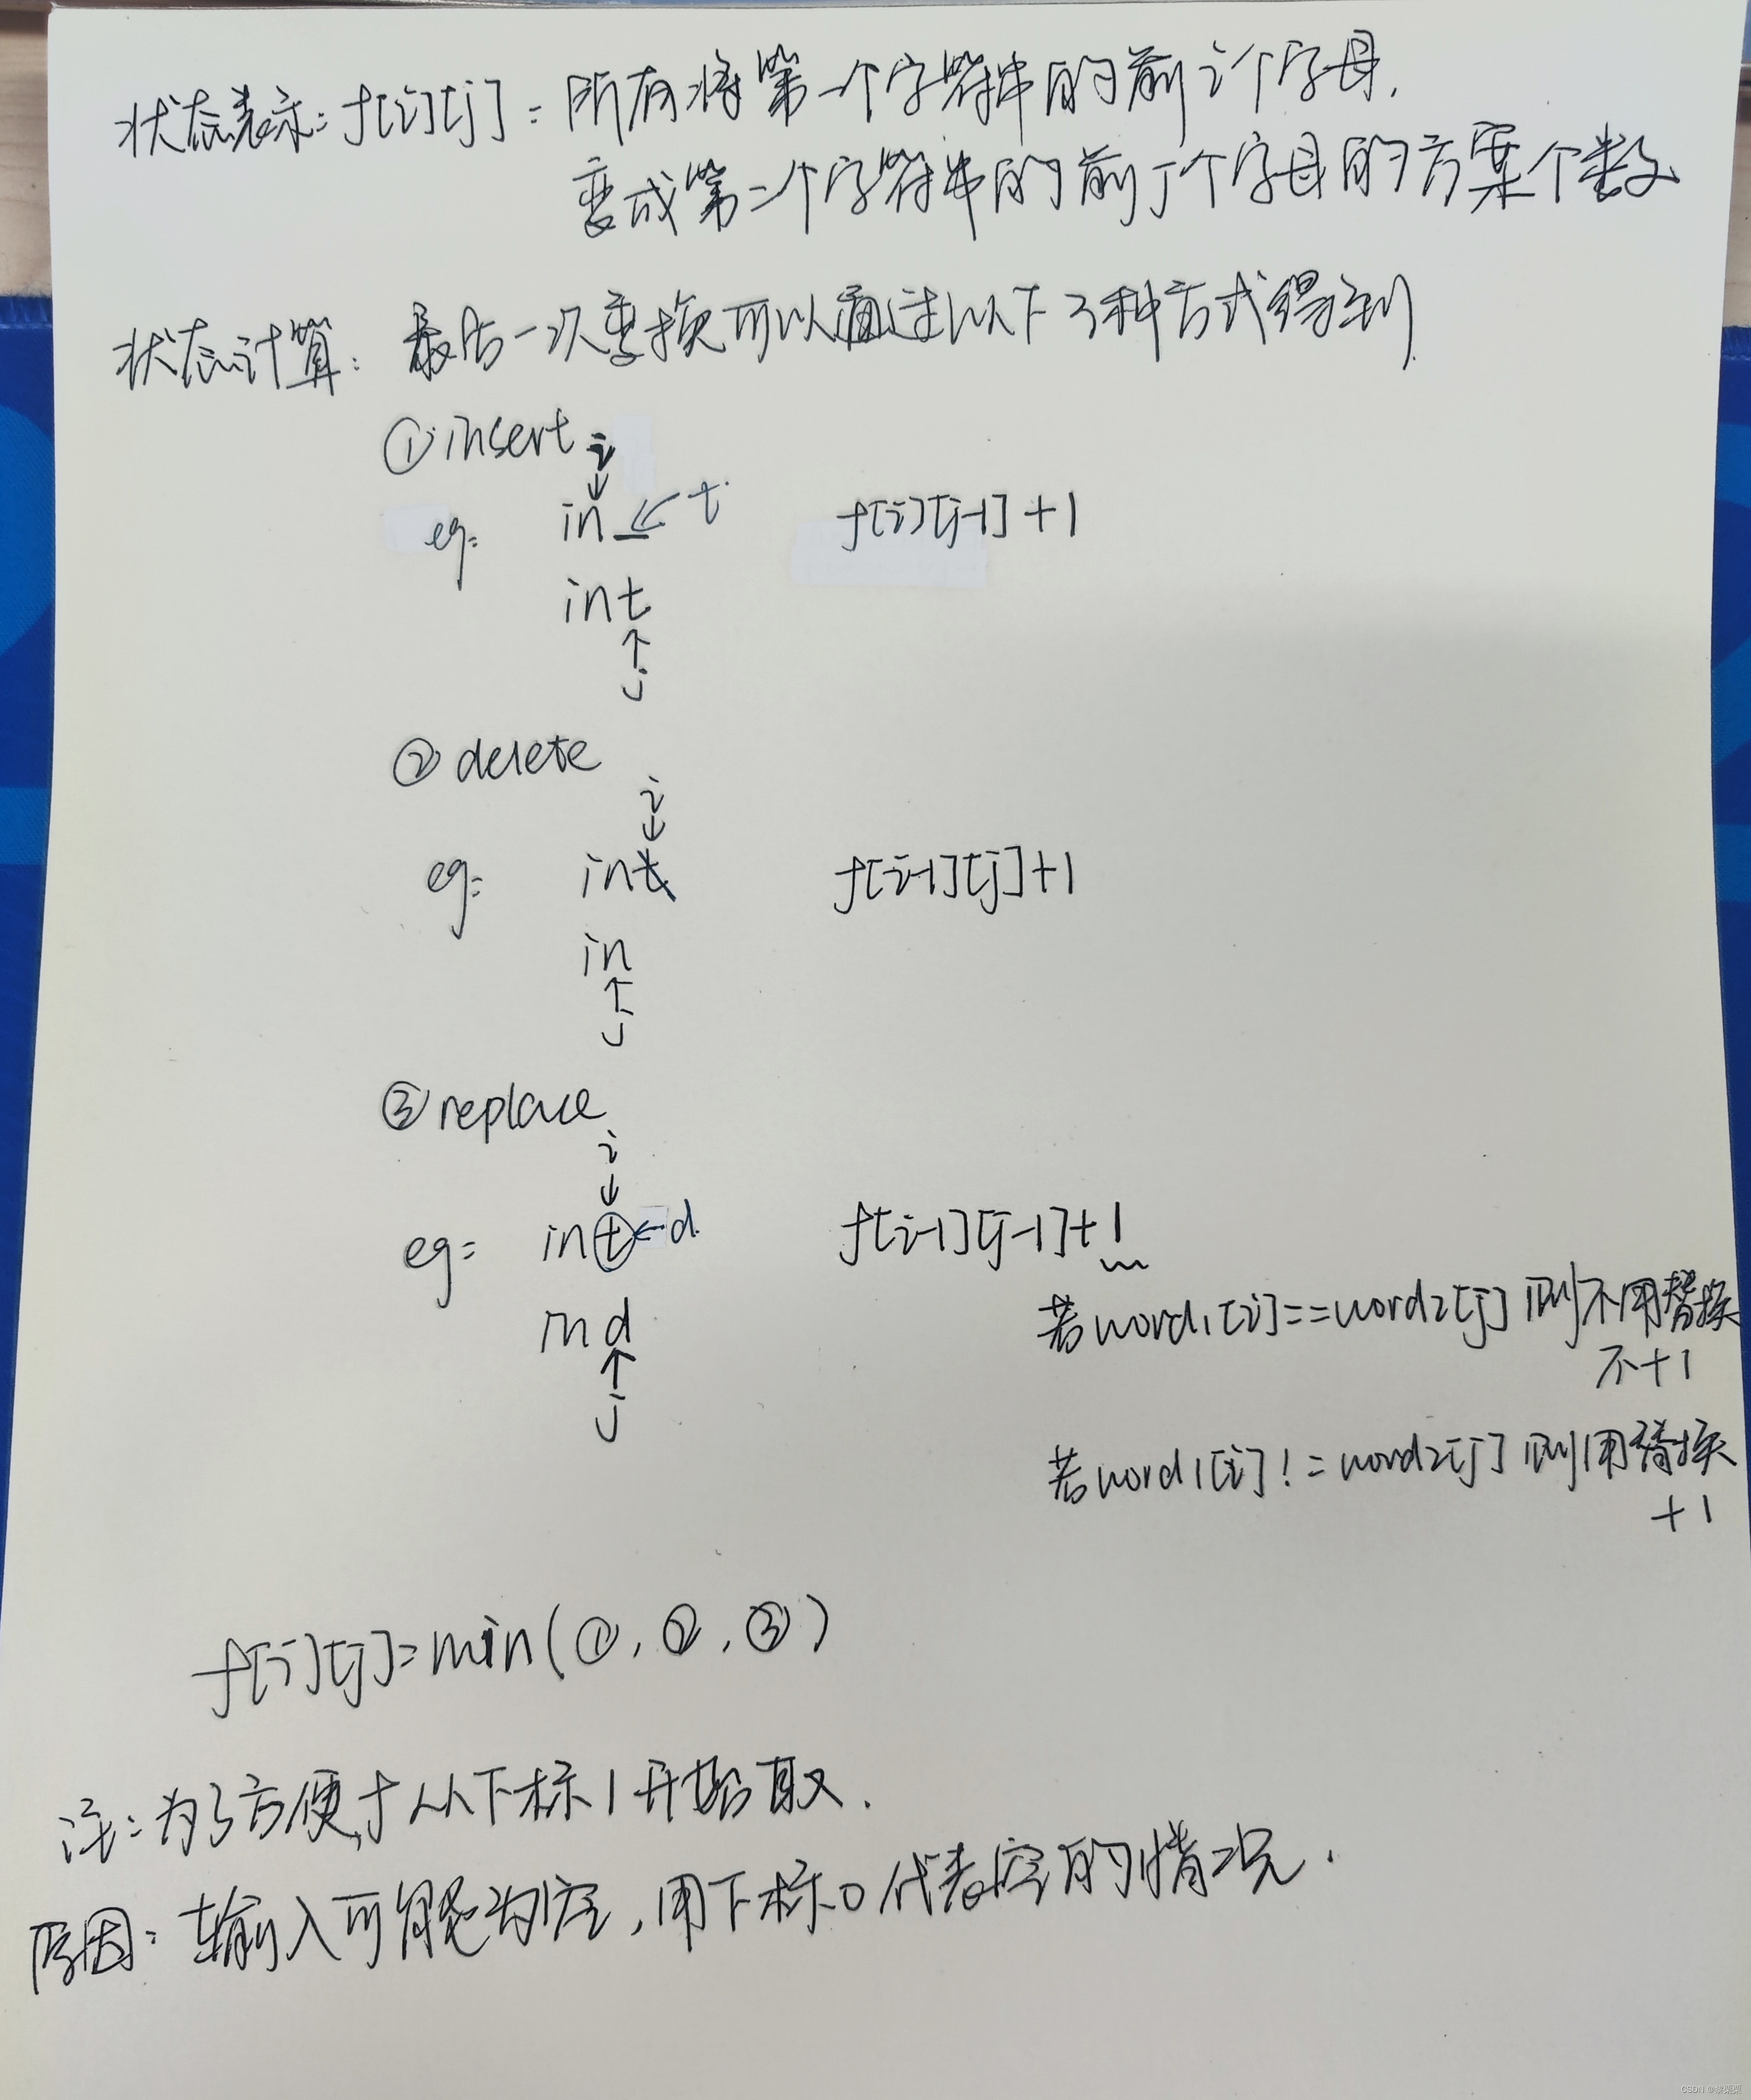 状态表示: f[i][j] = 所有将第一个字符串的前i个字母,
变成第二个字符串的前j个字母的方案个数
状态计算: 最后一次变换可以通过以下3种方式得到
①insert i
↓
eg: in_ ← t
f[i][j-1]+1
int
↑
j
②delete
i
↓
eg: int
f[i-1][j]+1
in
↑
j
③replace
i
↓
eg: int←d
f[i-1][j-1]+1
ind
↑
j
若word1[i]==word2[j]则不用替换
不+1
若word1[i]!=word2[j]则用替换
+1
f[i][j]=min(①,②,③)
注:为了方便,于从下标1开始取.
原因:输入可能为空,用下标0代表空的情况.